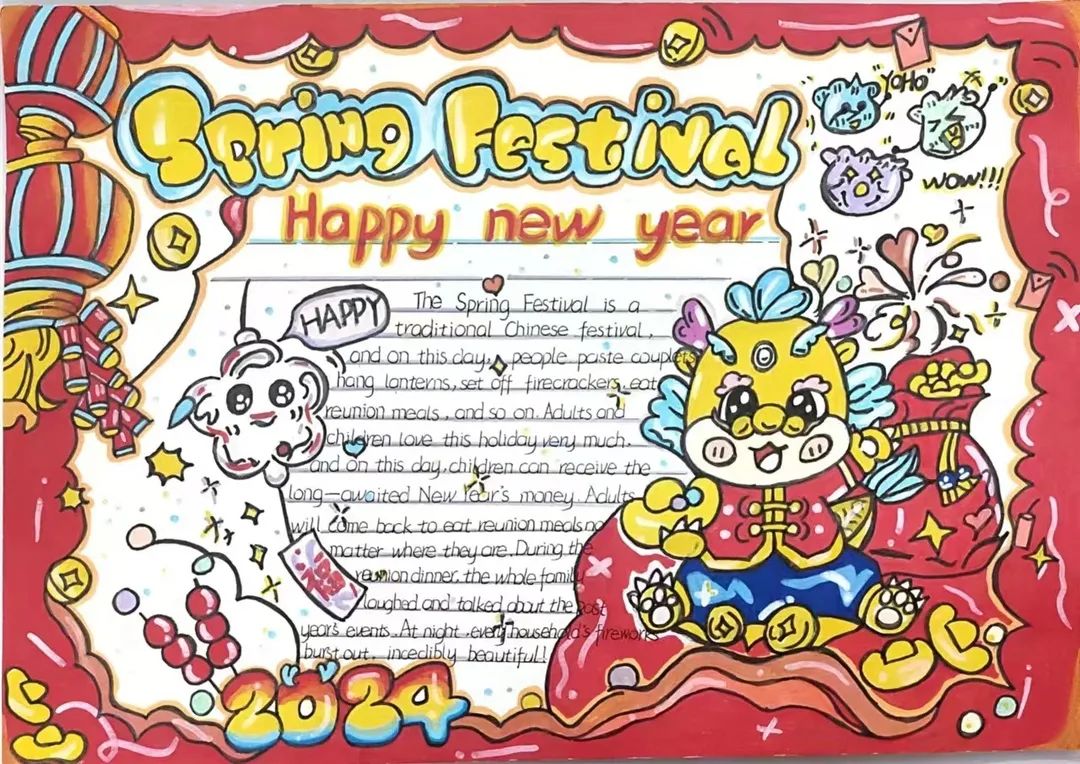 Spring Festival
"YOHO"
wow!!!
Happy new year
HAPPY
The Spring Festival is a
traditional Chinese festival,
and on this day, people paste couplets
hang lanterns, set off firecrackers, eat
reunion meals, and so on. Adults and
children love this holiday very much.
and on this day, children can receive the
long-awaited New Year's money. Adults
will come back to eat reunion meals no
matter where they are. During the
reunion dinner, the whole family
laughed and talked about the past
year's events. At night, every household's fireworks
burst out, incedibly beautiful!
2024